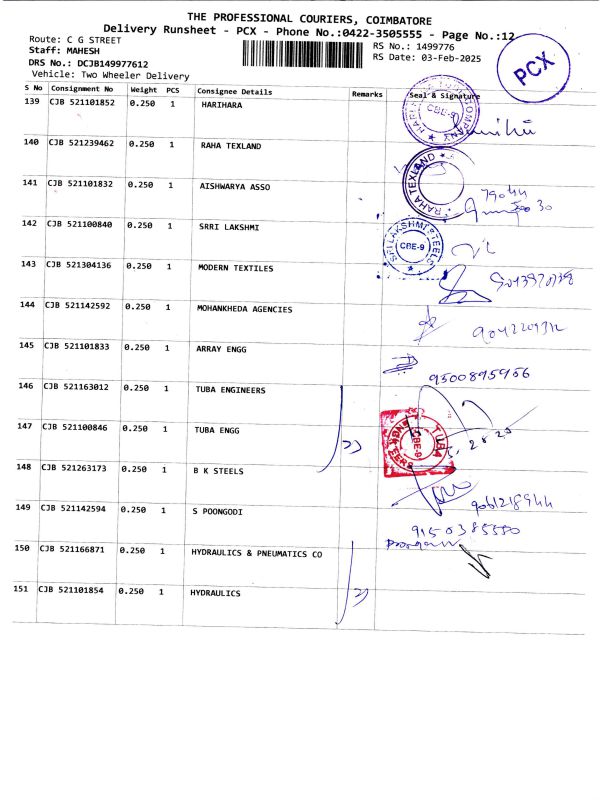 THE PROFESSIONAL COURIERS, COIMBATORE
Delivery Runsheet - PCX - Phone No.:0422-3505555 - Page No.:12
Route: C G STREET
RS No.: 1499776
Staff: MAHESH
RS Date: 03-Feb-2025
DRS No.: DCJB149977612
Vehicle: Two Wheeler Delivery
PCX
S No Consignment No Weight PCS Consignee Details Remarks Seal & Signature
139 CJB 521101852 0.250 1 HARIHARA
CBE-9
140 CJB 521239462 0.250 1 RAHA TEXLAND
RAHA TEXLAND
141 CJB 521101832 0.250 1 AISHWARYA ASSO
142 CJB 521100840 0.250 1 SRRI LAKSHMI
SRI LAKSHMI STEELS
CBE-9
143 CJB 521304136 0.250 1 MODERN TEXTILES
144 CJB 521142592 0.250 1 MOHANKHEDA AGENCIES
145 CJB 521101833 0.250 1 ARRAY ENGG
9500895956
146 CJB 521163012 0.250 1 TUBA ENGINEERS
147 CJB 521100846 0.250 1 TUBA ENGG
TUBA
CBE-9
148 CJB 521263173 0.250 1 B K STEELS
149 CJB 521142594 0.250 1 S POONGODI
150 CJB 521166871 0.250 1 HYDRAULICS & PNEUMATICS CO
151 CJB 521101854 0.250 1 HYDRAULICS